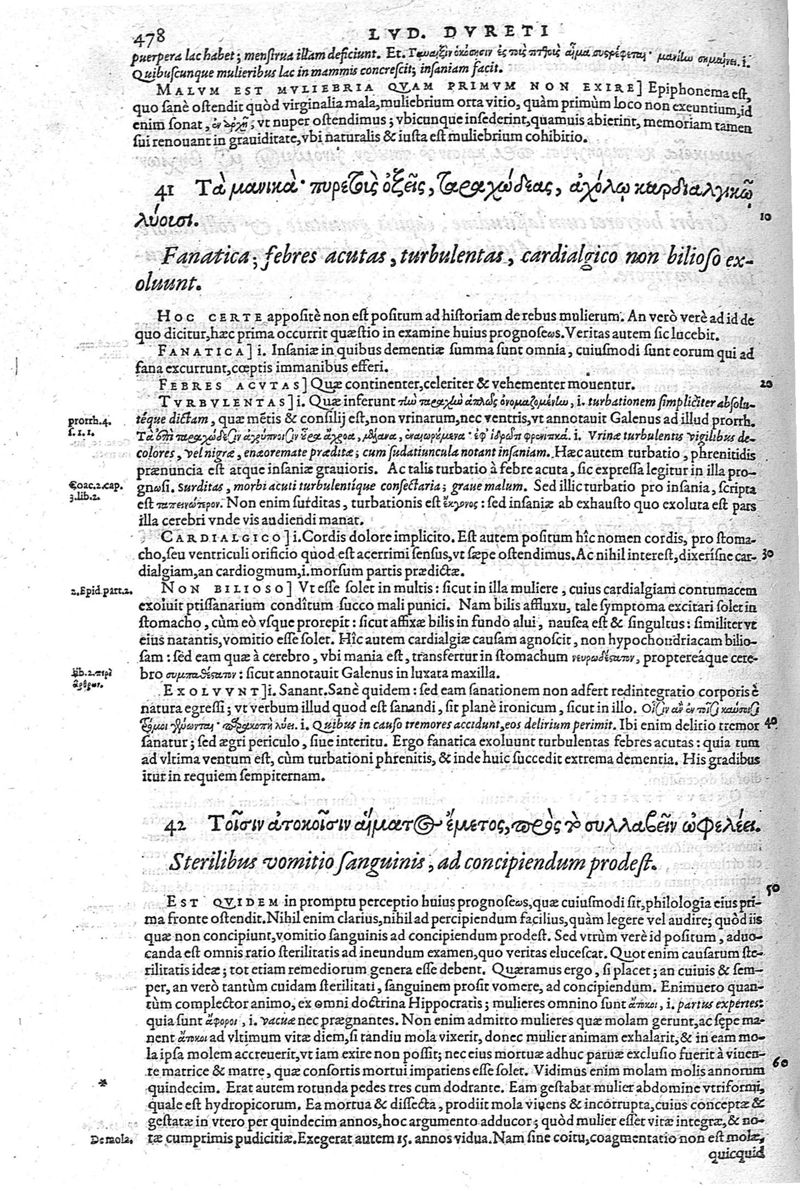 478
LVD. DVRETI
puerpera lac habet; menstrua illam deficiunt. Et. Γυναιξὶν ὁκόσησιν ἐς τοὺς τιτθοὺς αἷμα συστρέφεται· μανίην σημαίνει. i.
Quibuscunque mulieribus lac in mammis concrescit; insaniam facit.
MALVM EST MVLIEBRIA QVAM PRIMVM NON EXIRE] Epiphonema est,
quo sanè ostendit quòd virginalia mala, muliebrium orta vitio, quàm primùm loco non exeuntium, id
enim sonat, ἐν ἀρχῇ; vt nuper ostendimus; vbicunque insederint, quamuis abierint, memoriam tamen
sui renouant in grauiditate, vbi naturalis & iusta est muliebrium cohibitio.
41 Τὰ μανικὰ· πυρετοὺς ὀξεῖς, ταραχώδεας, ἀχόλῳ καρδιαλγικῷ
λύουσι.
10
Fanatica; febres acutas, turbulentas, cardialgico non bilioso ex-
oluunt.
HOC CERTE appositè non est positum ad historiam de rebus mulierum. An verò verè ad id de
quo dicitur, hæc prima occurrit quæstio in examine huius prognoseωs. Veritas autem sic lucebit.
FANATICA] i. Insaniæ in quibus dementiæ summa sunt omnia, cuiusmodi sunt eorum qui ad
fana excurrunt, cœptis immanibus efferi.
FEBRES ACVTAS] Quæ continenter, celeriter & vehementer mouentur.
20
TVRBVLENTAS] i. Quæ inferunt τὴν ταραχὴν ἁπλῶς ὀνομαζομένην, i. turbationem simpliciter absolu-
téque dictam, quæ mẽtis & consilij est, non vrinarum, nec ventris, vt annotauit Galenus ad illud prorrh.
prorrh. 4.
s. 1. 1.
decolores, vel nigræ, enaoremate præditæ; cum sudatiuncula notant insaniam. Hæc autem turbatio, phrenitidis
prænuncia est atque insaniæ grauioris. Ac talis turbatio à febre acuta, sic expressa legitur in illa pro-
Coac. 2. cap.
3. lib. 2.
gnωsi. Surditas, morbi acuti turbulentique consectaria; graue malum. Sed illic turbatio pro insania, scripta
est ταπεινώτερον. Non enim surditas, turbationis est ἔκγονος: sed insaniæ ab exhausto quo exoluta est pars
illa cerebri vnde vis audiendi manat.
CARDIALGICO] i. Cordis dolore implicito. Est autem positum hîc nomen cordis, pro stoma-
cho, seu ventriculi orificio quod est acerrimi sensus, vt sæpe ostendimus. Ac nihil interest, dixerísne car-
30
dialgiam, an cardiogmum, i. morsum partis prædictæ.
NON BILIOSO] Vt esse solet in multis: sicut in illa muliere, cuius cardialgiam contumacem
2. Epid. part. 2.
exoluit ptissanarium condîtum succo mali punici. Nam bilis affluxu, tale symptoma excitari solet in
stomacho, cùm eò vsque prorepit: sicut affixæ bilis in fundo alui, nausea est & singultus: similiter vt
eius natantis, vomitio esse solet. Hîc autem cardialgiæ causam agnoscit, non hypochondriacam bilio-
sam: sed eam quæ à cerebro, vbi mania est, transfertur in stomachum νευρωδέστατον, proptereáque cere-
lib. 2. περὶ
ἄρθρων.
bro συμπαθέστατον: sicut annotauit Galenus in luxata maxilla.
EXOLVVNT] i. Sanant. Sanè quidem: sed eam sanationem non adfert redintegratio corporis è
natura egressi; vt verbum illud quod est sanandi, sit planè ironicum, sicut in illo. Οἷσιν ἂν ἐν τοῖσι καύσοισι
τρόμοι γένωνται· παρακοπὴ λύει. i. Quibus in causo tremores accidunt, eos delirium perimit. Ibi enim delirio tremor
40
sanatur; sed ægri periculo, siue interitu. Ergo fanatica exoluunt turbulentas febres acutas: quia tum
ad vltima ventum est, cùm turbationi phrenitis, & inde huic succedit extrema dementia. His gradibus
itur in requiem sempiternam.
42 Τοῖσιν ἀτόκοισιν αἵματος ἔμετος, πρὸς τὸ συλλαβεῖν ὠφελέει.
Sterilibus vomitio sanguinis, ad concipiendum prodest.
50
EST QVIDEM in promptu perceptio huius prognoseωs, quæ cuiusmodi sit, philologia eius pri-
ma fronte ostendit. Nihil enim clarius, nihil ad percipiendum facilius, quàm legere vel audire; quòd iis
quæ non concipiunt, vomitio sanguinis ad concipiendum prodest. Sed vtrùm verè id positum, aduo-
canda est omnis ratio sterilitatis ad ineundum examen, quo veritas elucescat. Quot enim causarum ste-
rilitatis ideæ; tot etiam remediorum genera esse debent. Quæramus ergo, si placet; an cuiuis & sem-
per, an verò tantùm cuidam sterilitati, sanguinem prosit vomere, ad concipiendum. Enimuero quan-
tùm complector animo, ex omni doctrina Hippocratis; mulieres omnino sunt ἄτοκοι, i. partus expertes:
quia sunt ἄφοροι, i. vacuæ nec prægnantes. Non enim admitto mulieres quæ molam gerunt, ac sępe ma-
nent ἄτοκοι ad vltimum vitæ diem, si tandiu mola vixerit, donec mulier animam exhalarit, & in eam mo-
la ipsa molem accreuerit, vt iam exire non possit; nec eius mortuæ adhuc paruæ exclusio fuerit à viuen-
te matrice & matre, quæ consortis mortui impatiens esse solet. Vidimus enim molam molis annorum
60
quindecim. Erat autem rotunda pedes tres cum dodrante. Eam gestabat mulier abdomine vtriformi,
*
quale est hydropicorum. Ea mortua & dissecta, prodiit mola viuens & incorrupta, cuius conceptæ &
gestatæ in vtero per quindecim annos, hoc argumento adducor; quòd mulier esset vitæ integræ, & no-
De mola.
tæ cumprimis pudicitiæ. Exegerat autem 15. annos vidua. Nam sine coitu, coagmentatio non est molæ,
quicquid